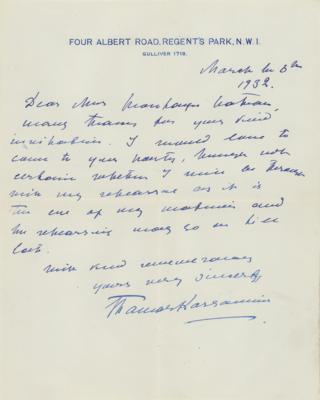 FOUR ALBERT ROAD, REGENT'S PARK, N.W.1.
GULLIVER 1719.
March the 5th
1932.
Dear Mrs Montague
many thanks for your kind
invitation. I would love to
come to your party, not
certain whether I will be through
with my rehearsal as it is
the eve of my matinée and
the rehearsing may go on till
late.
With kind remembrances
yours very sincerely
Thamar Karsavina